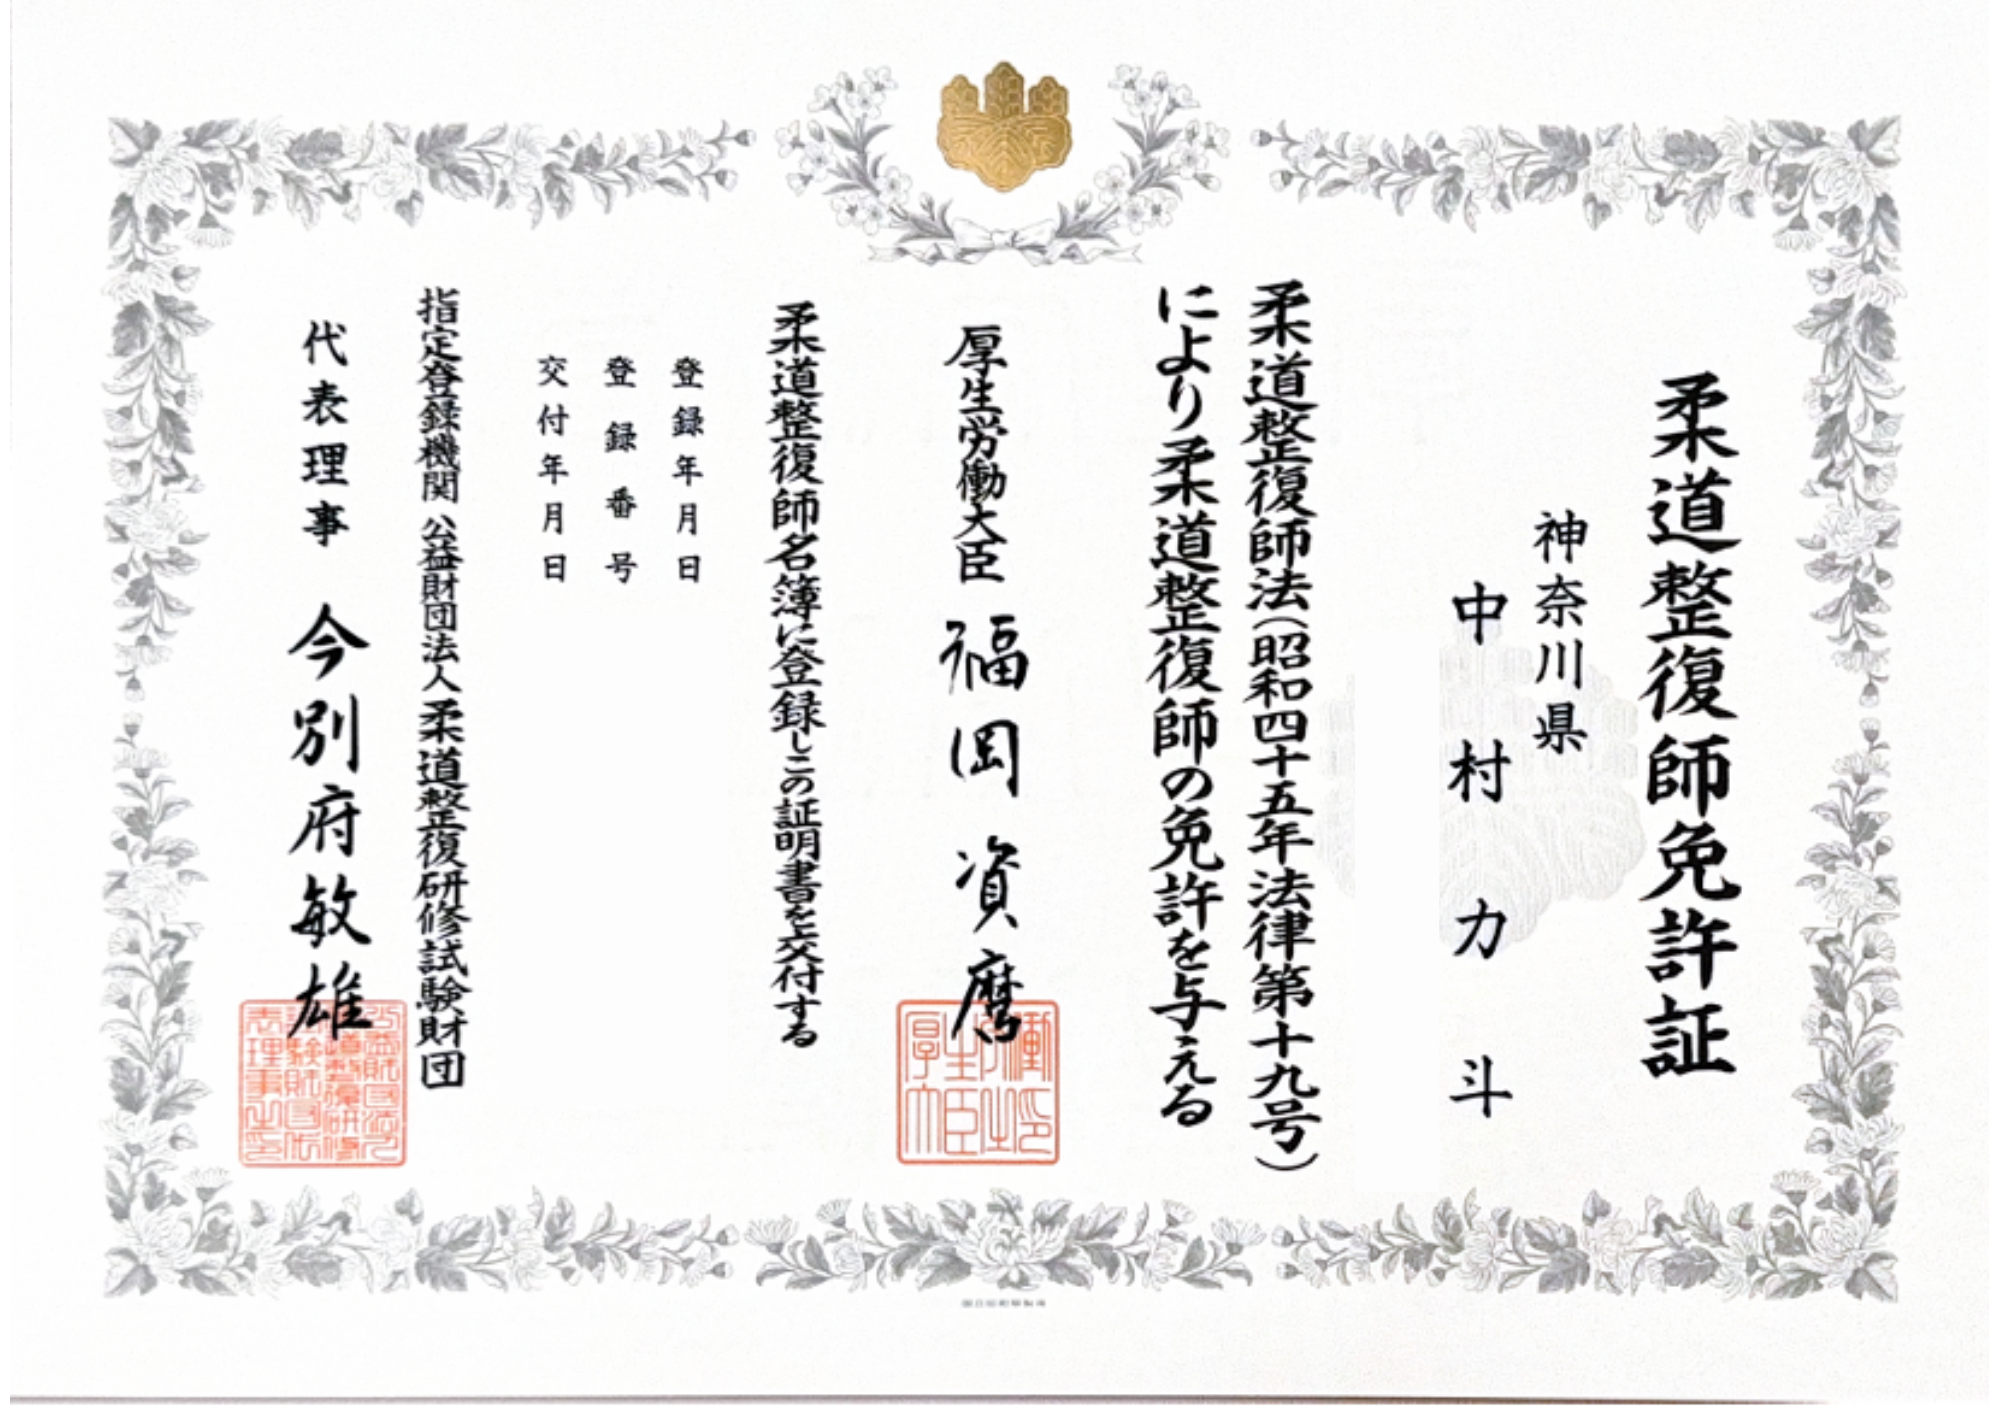 柔道整復師免許証
神奈川県
中村力斗
柔道整復師法(昭和四十五年法律第十九号)
により柔道整復師の免許を与える
厚生労働大臣 福岡資麿
柔道整復師名簿に登録しこの証明書を交付する
登録年月日
登録番号
交付年月日
指定登録機関 公益財団法人柔道整復研修試験財団
代表理事 今別府敏雄